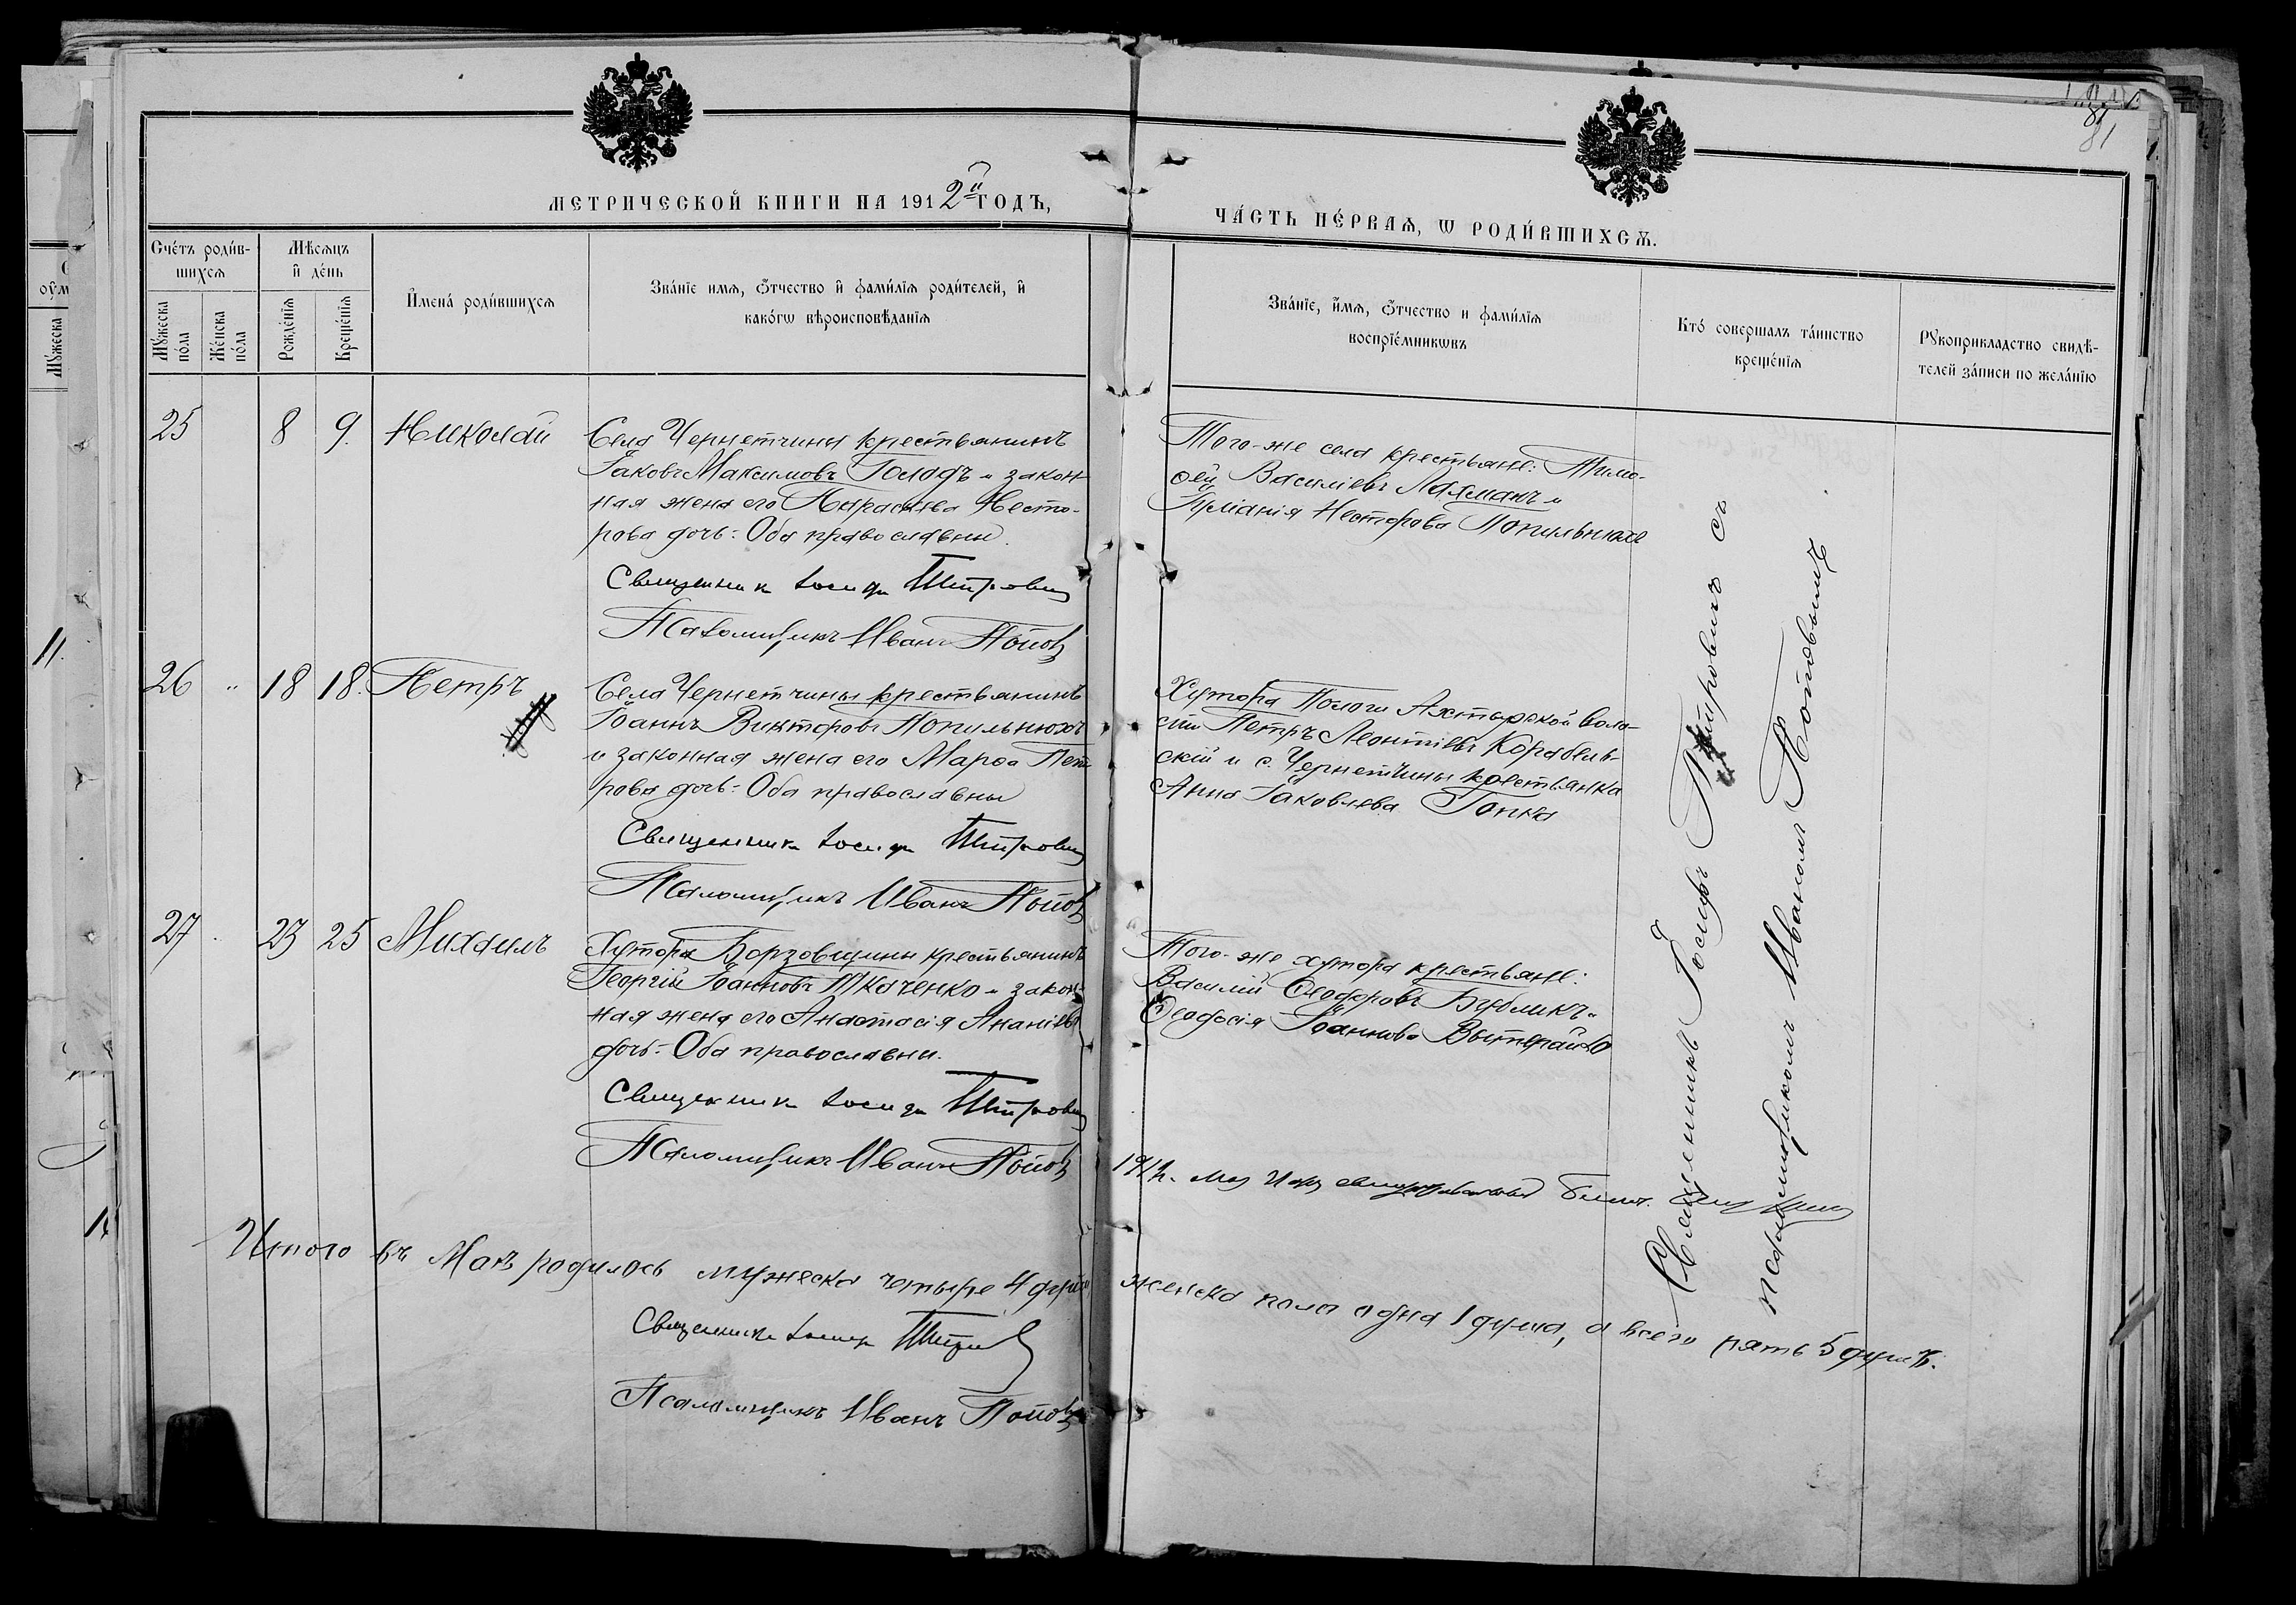 81
81
МЕТРИЧЕСКОЙ КНИГИ НА 1912й ГОДЪ,
ЧА́СТЬ ПЕ́РВАѦ, Ѡ РОДИ́ВШИХСѦ.
Сче́тъ роди́в-
шихсѧ
Мѣсѧцъ
и҆ де́нь
Мꙋжеска
по́ла
Же́нска
по́ла
Рожде́нїѧ
Креще́нїѧ
И҆мена́ роди́вшихсѧ
Зва́нїе имѧ, ѻ҆́тчество и҆ фами́лїѧ роди́телей, и҆
како́гѡ вѣроисповѣ́данїѧ
Зва́нїе, и҆́мѧ, ѻ҆́тчество и фами́лїѧ
воспрїе́мникѡвъ
Кто́ совершалъ та́инство
креще́нїѧ
Рꙋкоприкладство свидѣ́-
телей за́писи по жела́нїю
25 8 9. Николай
Села Чернетчины крестьянинъ
Іаковъ Максимовъ Голодъ и закон-
ная жена его Параскева Несто-
рова дочь: Оба православны.
Священникъ Іосифъ
Псаломщикъ Иванъ Поповъ
Того-же села крестьяне: Тимо-
ѳей Василіевъ Лахманъ и
Іуліанія Несторова Попильнюхо
26 " 18 18. Петръ
Села Чернетчины крестьянинъ
Іоаннъ Викторовъ Попильнюхъ
и законная жена его Марѳа Пет-
рова дочь: Оба православны
Священникъ Іосифъ
Псаломщикъ Иванъ Поповъ
Хутора Пологи Ахтырской воло-
сти Петръ Леонтіевъ Корабель-
скій и с. Чернетчины крестьянка
Анна Іаковлева Гопка
27 23 25 Михаилъ
Хутора Борзовщины крестьянинъ
Георгій Іоанновъ Ткаченко и закон-
ная жена его Анастасія Ананіева
дочь: Оба православны.
Священникъ Іосифъ
Псаломщикъ Иванъ Поповъ
Того-же хутора крестьяне:
Василій Ѳеодоровъ Бубликъ и
Ѳеодосія Іоаннова
Священникъ Іосифъ съ
псаломщикомъ Иваномъ Поповымъ
Итого въ Маѣ родилось мужеска четыре 4 души женска пола одна 1 душа, а всего пять 5 душъ.
Священникъ Іосифъ
Псаломщикъ Иванъ Поповъ
11.